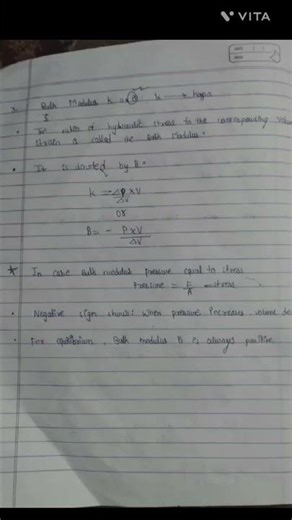 VITA
* Bulk Modulus k =
The ratio of hydraulic stress to the corresponding
strain is called the Bulk Modulus.
It is denoted by B.
k = -ΔP x V
ΔV
OR
B = - P x V
ΔV
* In case Bulk modulus pressure equal to stress
Pressure = F = stress
A
Negative sign shows: when pressure increases, volume de
For equilibrium, Bulk modulus B is always positive